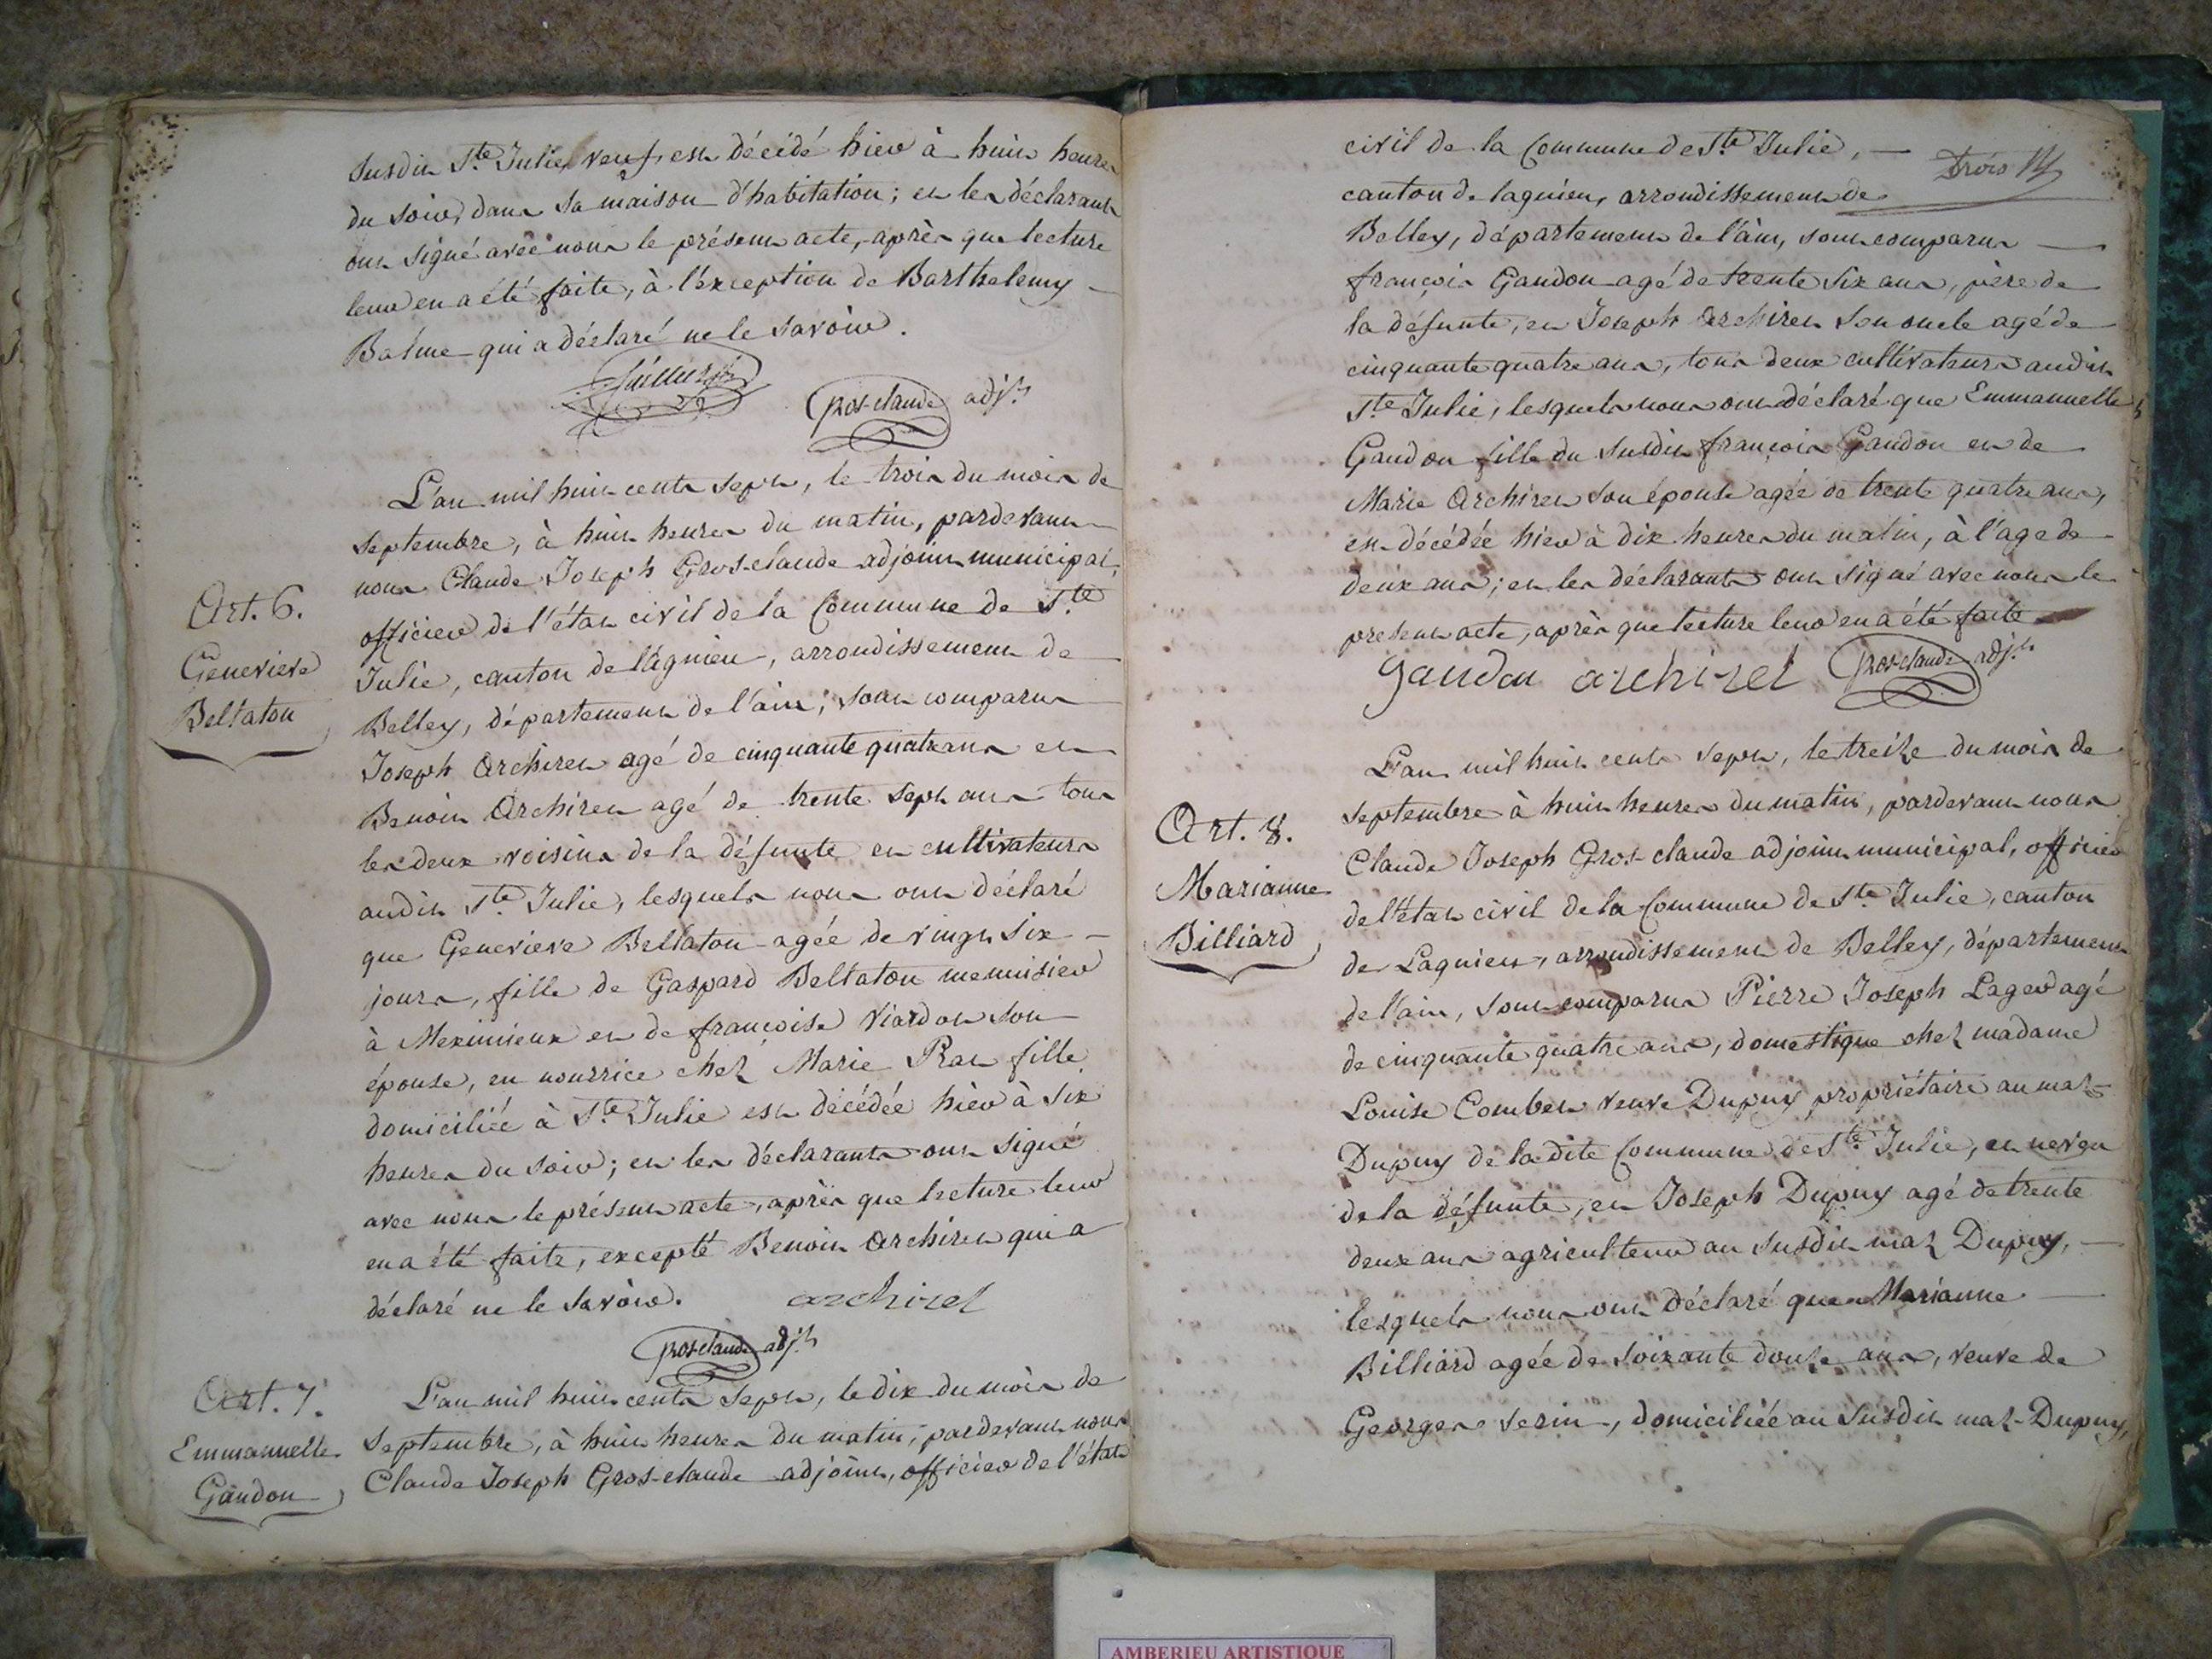 susdit Ste Julie, veuf, est décédé hier à huit heures
du soir, dans sa maison d'habitation; et les déclarants
ont signé avec nous le présent acte, après que lecture
leur en a été faite, à l'éxception de Barthelemy
Balme qui a déclaré ne le savoir.
Gros-claude adjt
L'an mil huit cents sept, le trois du mois de
septembre, à huit heures du matin, pardevant
nous Claude Joseph Gros-claude adjoint municipal,
officier de l'état civil de la Commune de Ste
Art. 6.
Genevieve
Beltaton
Julie, canton de lagnieu, arrondissement de
Belley, département de l'ain, sont comparus
Joseph Archiret agé de cinquante quatre ans et
Benoit Archiret agé de trente sept ans tous
les deux voisins de la défunte et cultivateurs
audit Ste Julie, lesquels nous ont déclaré
que Genevieve Beltaton agée de vingt six
jours, fille de Gaspard Beltaton menuisier
à Meximieux et de françoise Viardot son
épouse, en nourrice chez Marie Rat fille
domiciliée à Ste Julie est décédée hier à six
heures du soir; et les déclarants ont signé
avec nous le présent acte, après que lecture leur
en a été faite, excepté Benoit Archiret qui a
déclaré ne le savoir. archiret
Gros-claude adjt
Art. 7.
Emmanuelle
Gandon
L'an mil huit cents sept, le dix du mois de
septembre, à huit heures du matin, pardevant nous
Claude Joseph Gros-claude adjoint, officier de l'état
trois
civil de la Commune de Ste Julie,
canton de lagnieu, arrondissement de
Belley, département de l'ain, sont comparus
françois Gandon agé de trente six ans, père de
la défunte, et Joseph Archiret son oncle agé de
cinquante quatre ans, tous deux cultivateurs audit
Ste Julie, lesquels nous ont déclaré que Emmanuelle
Gandon fille du susdit françois Gandon et de
Marie Archiret son épouse agée de trente quatre ans,
est décédée hier à dix heures du matin, à l'age de
deux ans; et les déclarants ont signé avec nous le
present acte, après que lecture leur en a été faite
gandon archiret Gros-claude adjt
Art. 8.
Marianne
Billiard
L'an mil huit cents sept, le treize du mois de
septembre à huit heures du matin, pardevant nous
Claude Joseph Gros-claude adjoint municipal, officier
de l'état civil de la Commune de Ste Julie, canton
de Lagnieu, arrondissement de Belley, département
de l'ain, sont comparus Pierre Joseph Lager agé
de cinquante quatre ans, domestique chez madame
Louise Combet veuve Dupuy propriétaire au mas
Dupuy de la dite Commune de Ste Julie, et neveu
de la défunte, et Joseph Dupuy agé de trente
deux ans agriculteur au susdit maz Dupuy,
lesquels nous ont déclaré que Marianne
Billiard agée de soixante douze ans, veuve de
George Serin, domiciliée au susdit maz-Dupuy,
AMBERIEU ARTISTIQUE